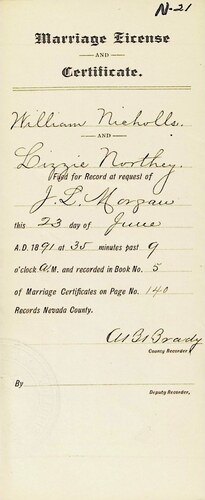 N-21
Marriage License
AND
Certificate.
William Nicholls.
AND
Lizzie Northey.
Filed for Record at request of
J. L. Morgan
this 23 day of June
A.D. 1891 at 35 minutes past 9
o'clock A.M. and recorded in Book No. 5
of Marriage Certificates on Page No. 140
Records Nevada County.
Brady
County Recorder
By
Deputy Recorder,